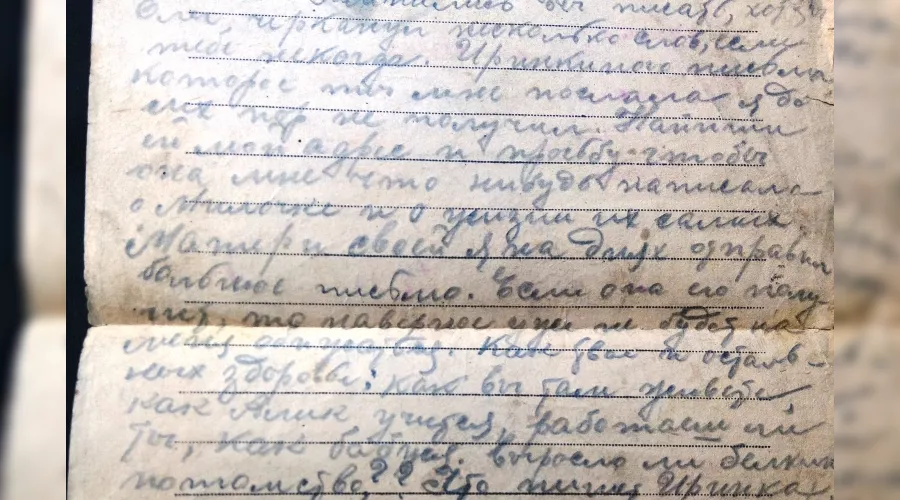 писать, хотя
бы черкани несколько слов, если
тебе некогда. Иринкиного письма
которое ты мне послала я до
сих пор не получил. Напиши
ей мой адрес и просьбу чтобы
она мне что нибудь написала
о Милочке и о жизни их самих.
Матери своей я на днях отправил
большое письмо. Если она его полу
чит, то наверное уже не будет на
меня обижаться. Как твое и осталь-
ных здоровье; как вы там живете
как Алик учится, работаеш ли
ты, как бабуся. выросло ли белкин
потомство?? Что пишет Иринка